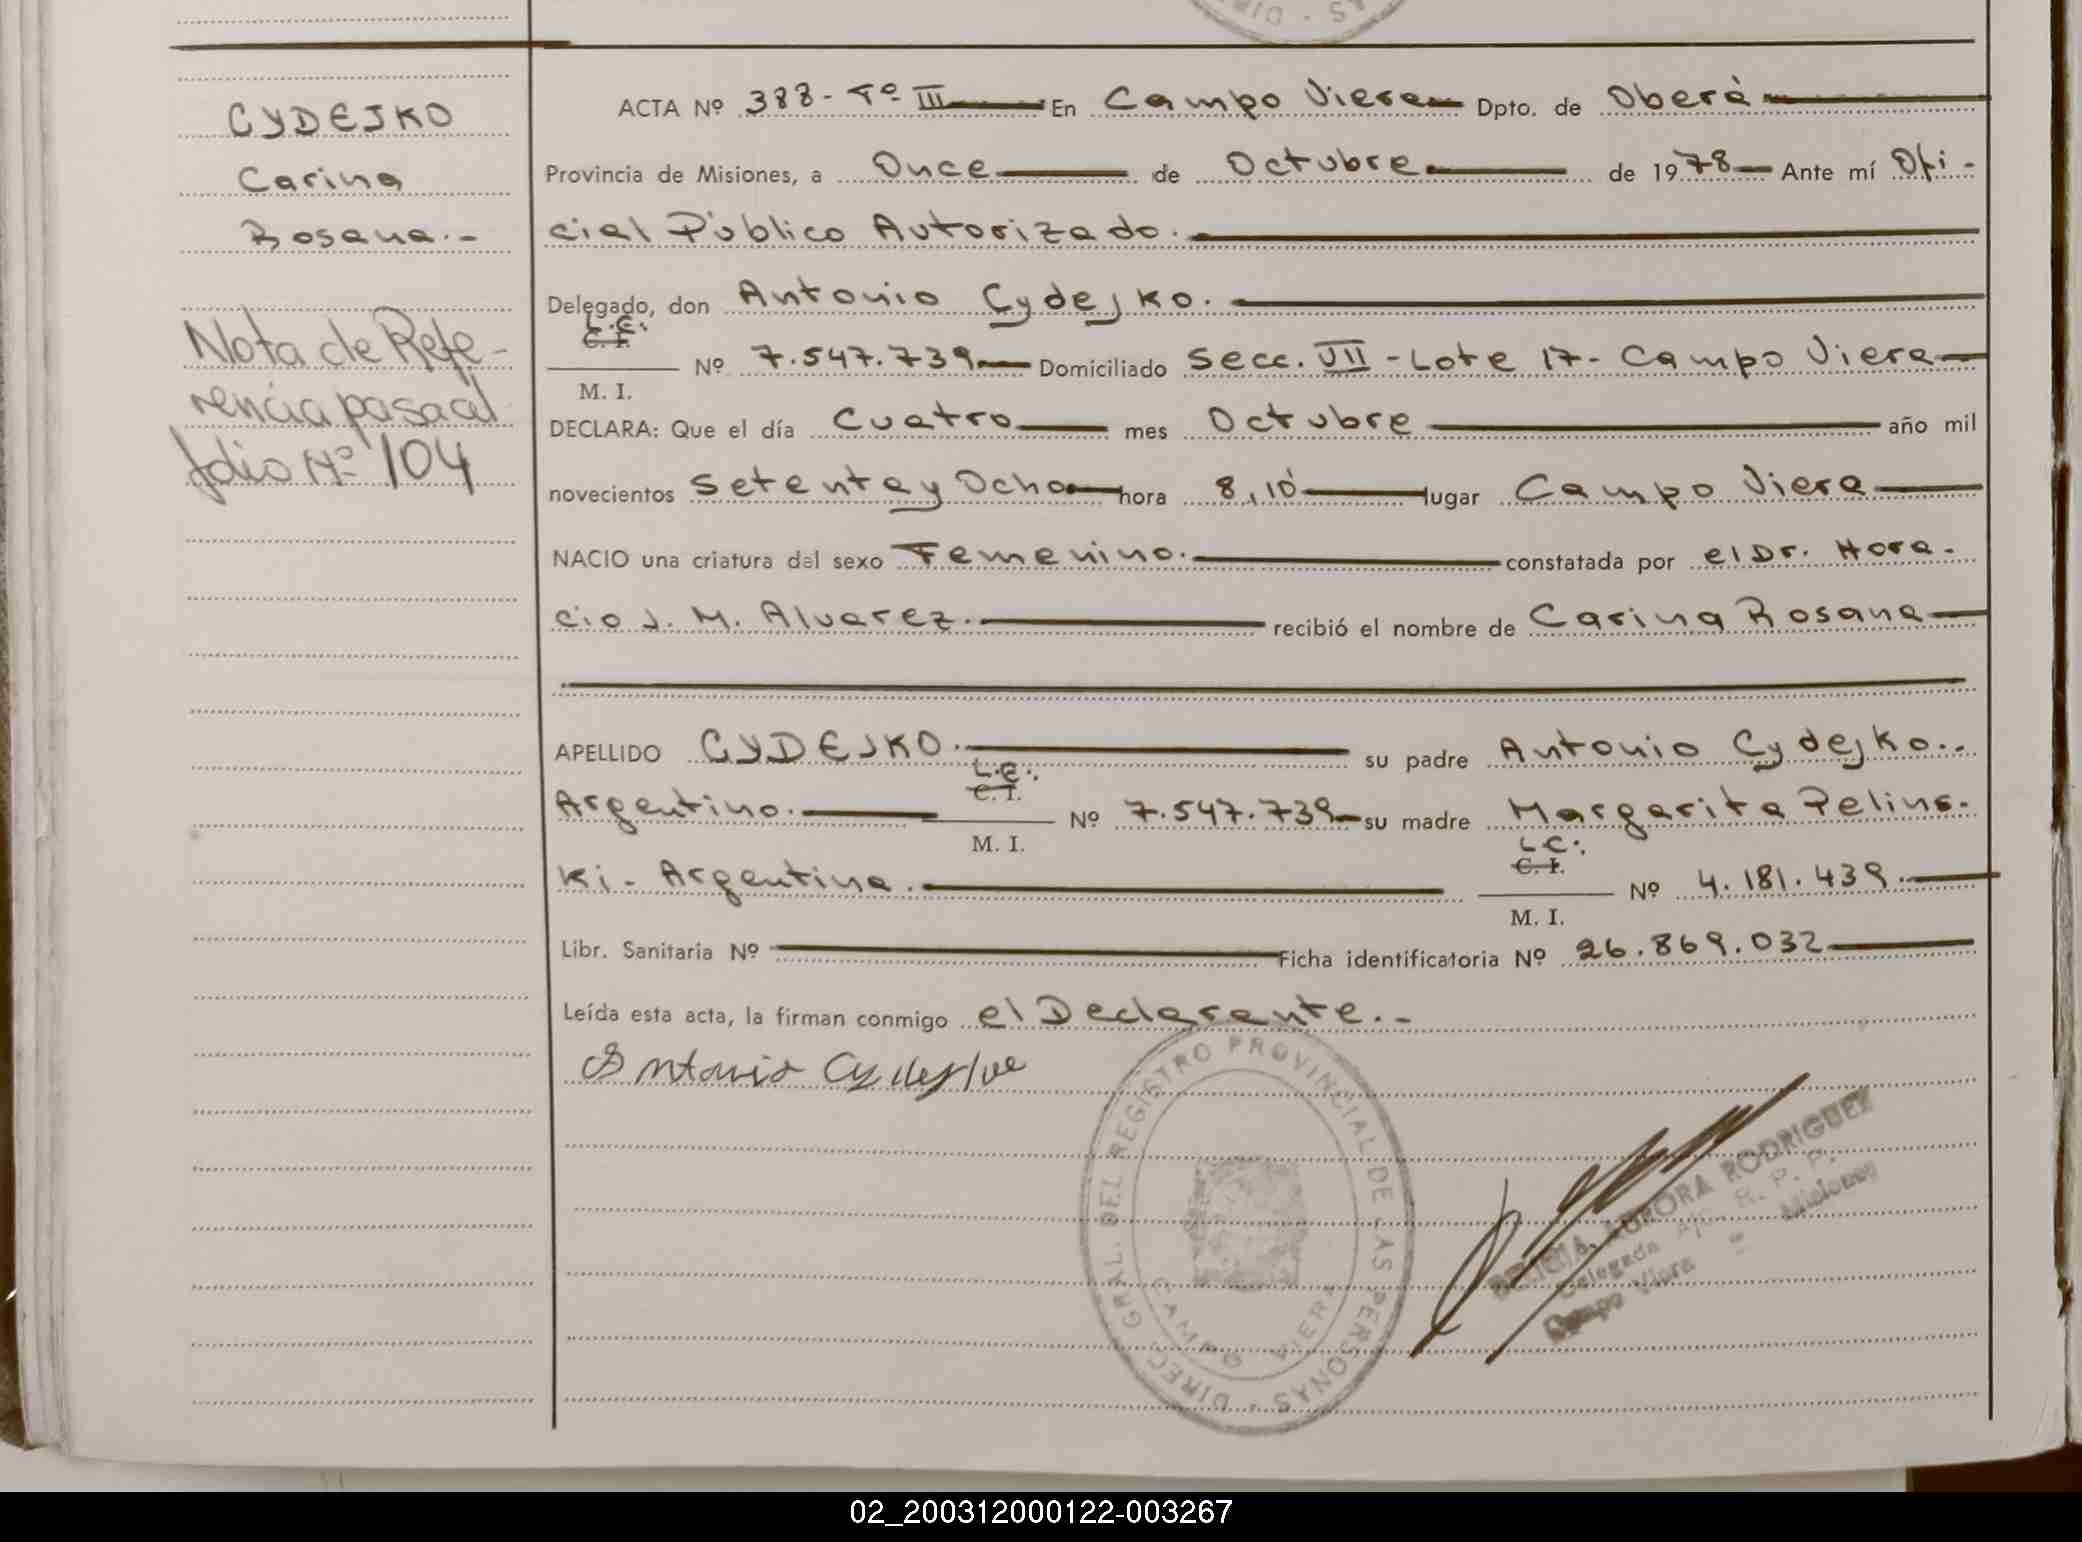 CYDEJKO
Carina
Rosana.-
Nota de Refe-
rencia pasa al
folio Nº 104
ACTA Nº 388- Tº III En Campo Viera Dpto. de Oberá
Provincia de Misiones, a Once de Octubre de 1978 Ante mí Ofi-
cial Público Autorizado.
Delegado, don Antonio Cydejko.
L.E.
C. I.
M. I. Nº 7.547.739 Domiciliado Secc. VII - Lote 17- Campo Viera
DECLARA: Que el día Cuatro mes Octubre año mil
novecientos Setenta y Ocho hora 8,10 lugar Campo Viera
NACIO una criatura del sexo Femenino. constatada por el Dr. Hora-
cio J. M. Alvarez. recibió el nombre de Carina Rosana
APELLIDO CYDEJKO. su padre Antonio Cydejko..
L.E.
Argentino. C. I. M. I. Nº 7.547.739 su madre Margarita Pelins-
L.C.
ki - Argentina. C. I. M. I. Nº 4.181.439.
Libr. Sanitaria Nº Ficha identificatoria Nº 26.869.032
Leída esta acta, la firman conmigo el Declarante.-
Antonio Cydejko
DIREC. GRAL. DEL REGISTRO PROVINCIAL DE LAS PERSONAS
CAMPO VIERA
AURORA RODRIGUEZ
Delegada A/C. R. P. P.
Campo Viera - Misiones
02_200312000122-003267